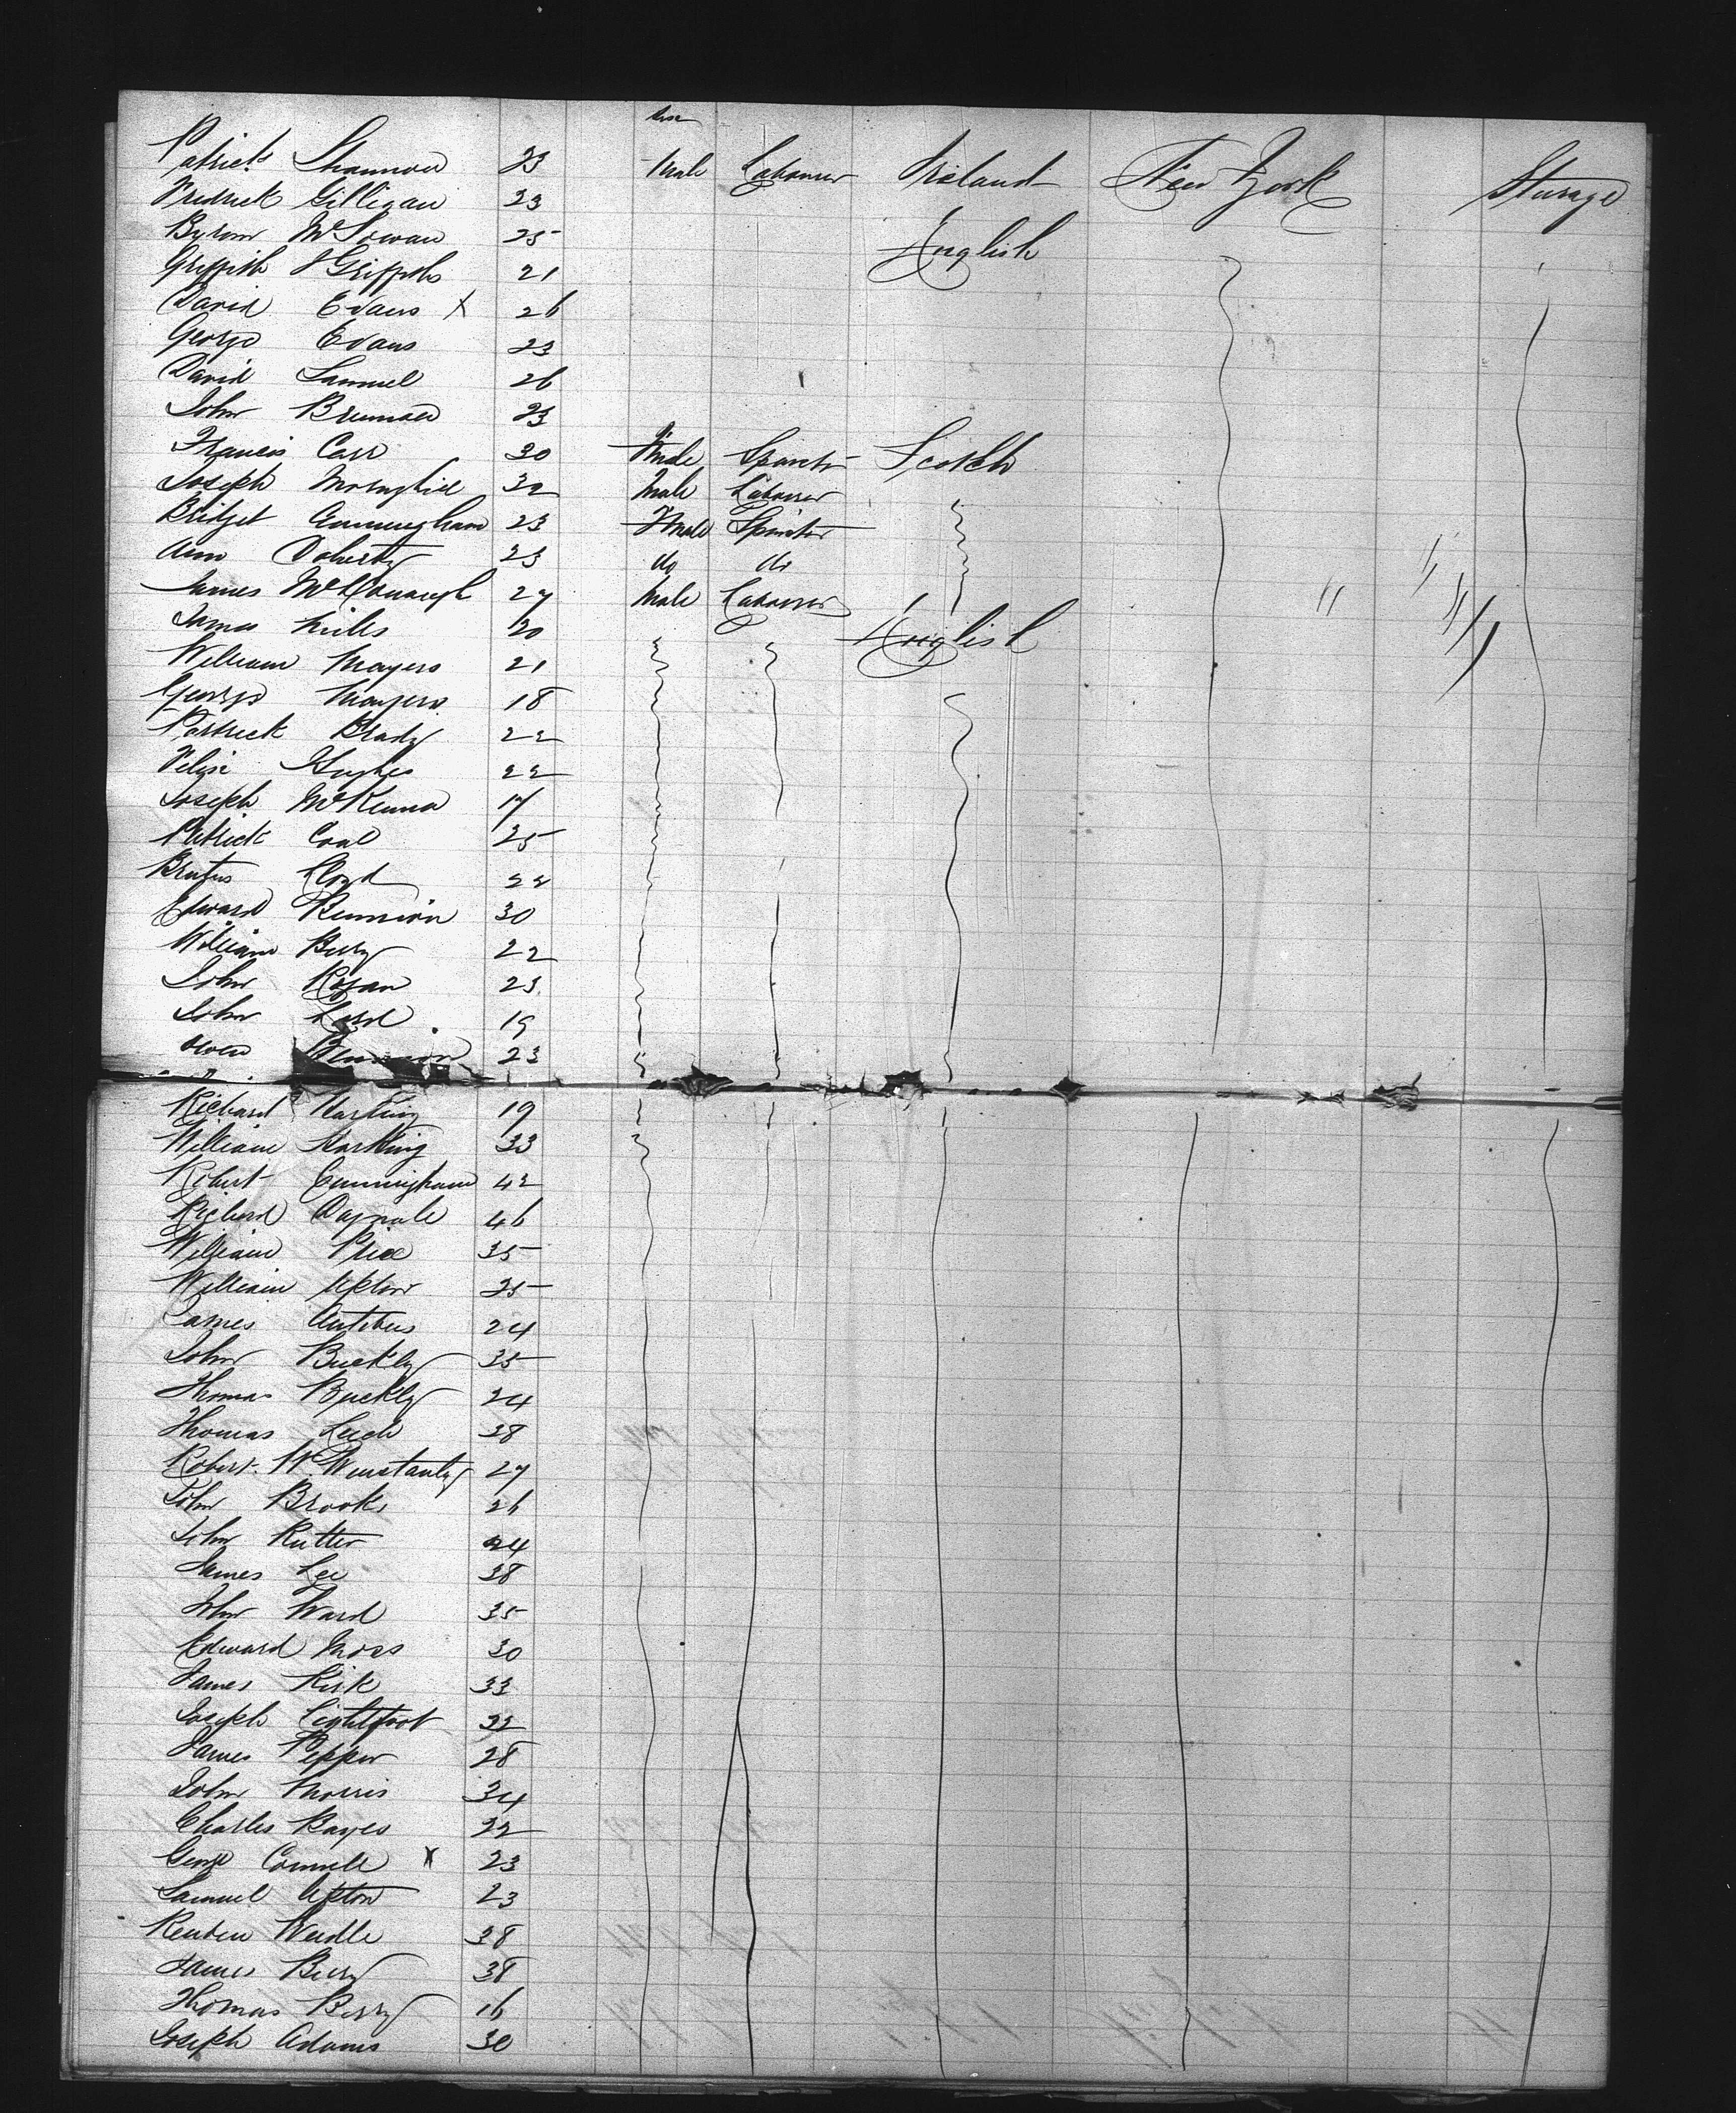 Patrick Shannon 23 Male Labourer Ireland New York Sturage
Fredrick Gilligan 23
Byron McGowan 25 English
Griffith Griffiths 21
David Evans X 26
George Evans 23
David Samuel 26
John Brennan 23
Francis Carr 30 Spinster Scotch
Joseph 32 Male Labourer
Bridget Cunningham 23 Female Spinster
Ann Doherty 23 do do
James McDonough 27 Male Labourer
James Mills 20 English
William Mayers 21
George Mayers 18
Patrick Brady 22
Felix Hughes 22
Joseph McKenna 17
Patrick Coal 25
Brutus Lloyd 22
Edward Kennion 30
William Berry 22
John Rogan 23
John Lord 19
Owen 23
Richard Harking 19
William Harking 33
Robert Cunningham 42
Richard 46
William Price 35
William Upton 25
James Antibus 24
John Buckly 35
Thomas Buckly 24
Thomas Leich 38
Robert W. Winstanly 27
John Brooks 26
John Rutter 24
James Lee 38
John Ward 35
Edward Moss 30
James Kirk 33
Joseph Lightfoot 32
James Pepper 28
John Morris 34
Charles Bayes 22
George Connell X 23
Samuel Upton 23
Reuben Weedle 38
James Berry 38
Thomas Berry 16
Joseph Adams 30